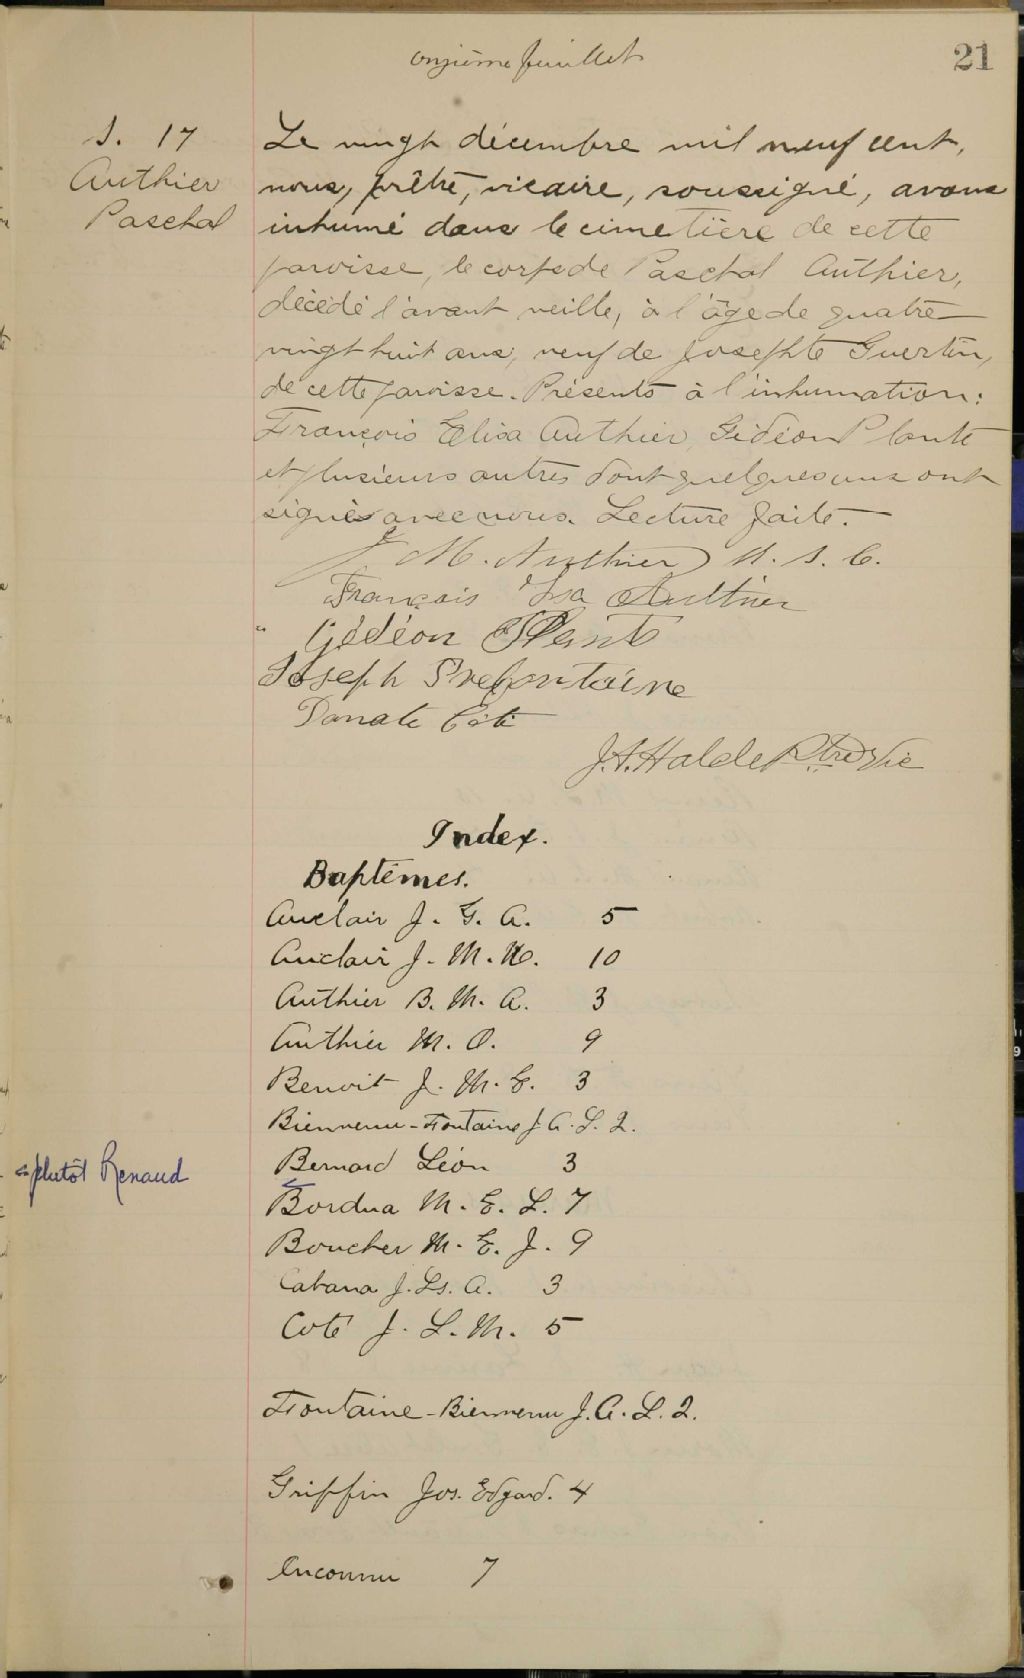 onzième feuillet
21
S. 17
Authier
Paschal
Le vingt décembre mil neuf cent,
nous, prêtre, vicaire, soussigné, avons
inhumé dans le cimetière de cette
paroisse, le corps de Paschal Authier,
décédé l'avant veille, à l'âge de quatre-
vingt huit ans, veuf de Josephte Guertin,
de cette paroisse. Présents à l'inhumation:
François Elisa Authier, Gédéon Plante
et plusieurs autres dont quelques uns ont
signés avec nous. Lecture faite.
J M. Authier
François Authier
Gédéon Plante
Joseph Prefontaine
Donate Coté
J.A. Halde Ptre Vic
Index.
Baptêmes.
Auclair J. G. A. 5
Auclair J. M. 10
Authier B. M. A. 3
Authier M. O. 9
Benoit J. M. E. 3
Bienvenu-Fontaine J. A. L. 2.
Bernard Léon 3
plutôt Renaud
Bordua M. E. L. 7
Boucher M. E. J. 9
Cabana J. Ls. A. 3
Coté J. L. M. 5
Fontaine-Bienvenu J. A. L. 2.
Griffin Jos. Edgard. 4
Inconnu 7